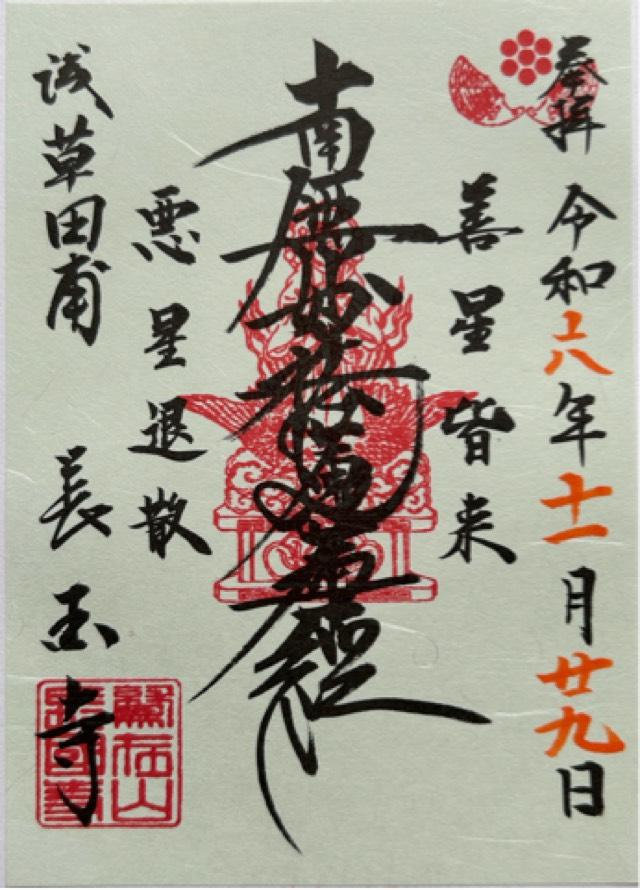 奉拝 令和六年十一月廿九日
善星皆来
南無妙法蓮華経
悪星退散
浅草田甫 長国寺
鷲在山
長國寺